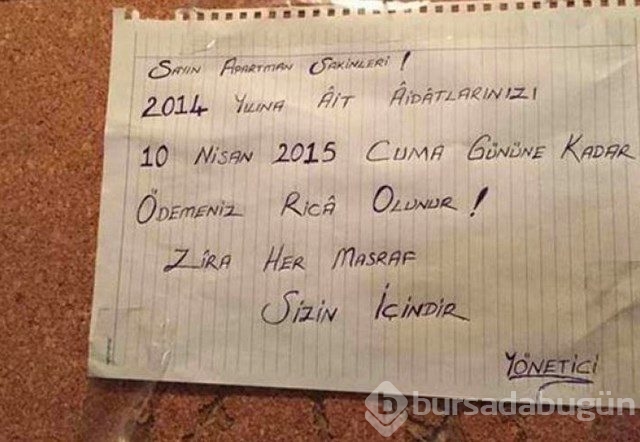 SAYIN APARTMAN SAKİNLERİ !
2014 YILINA ÂİT ÂİDÂTLARINIZI
10 NİSAN 2015 CUMA GÜNÜNE KADAR
ÖDEMENİZ RİCÂ OLUNUR !
ZİRA HER MASRAF
SİZİN İÇİNDİR
YÖNETİCİ
b bursadabugün